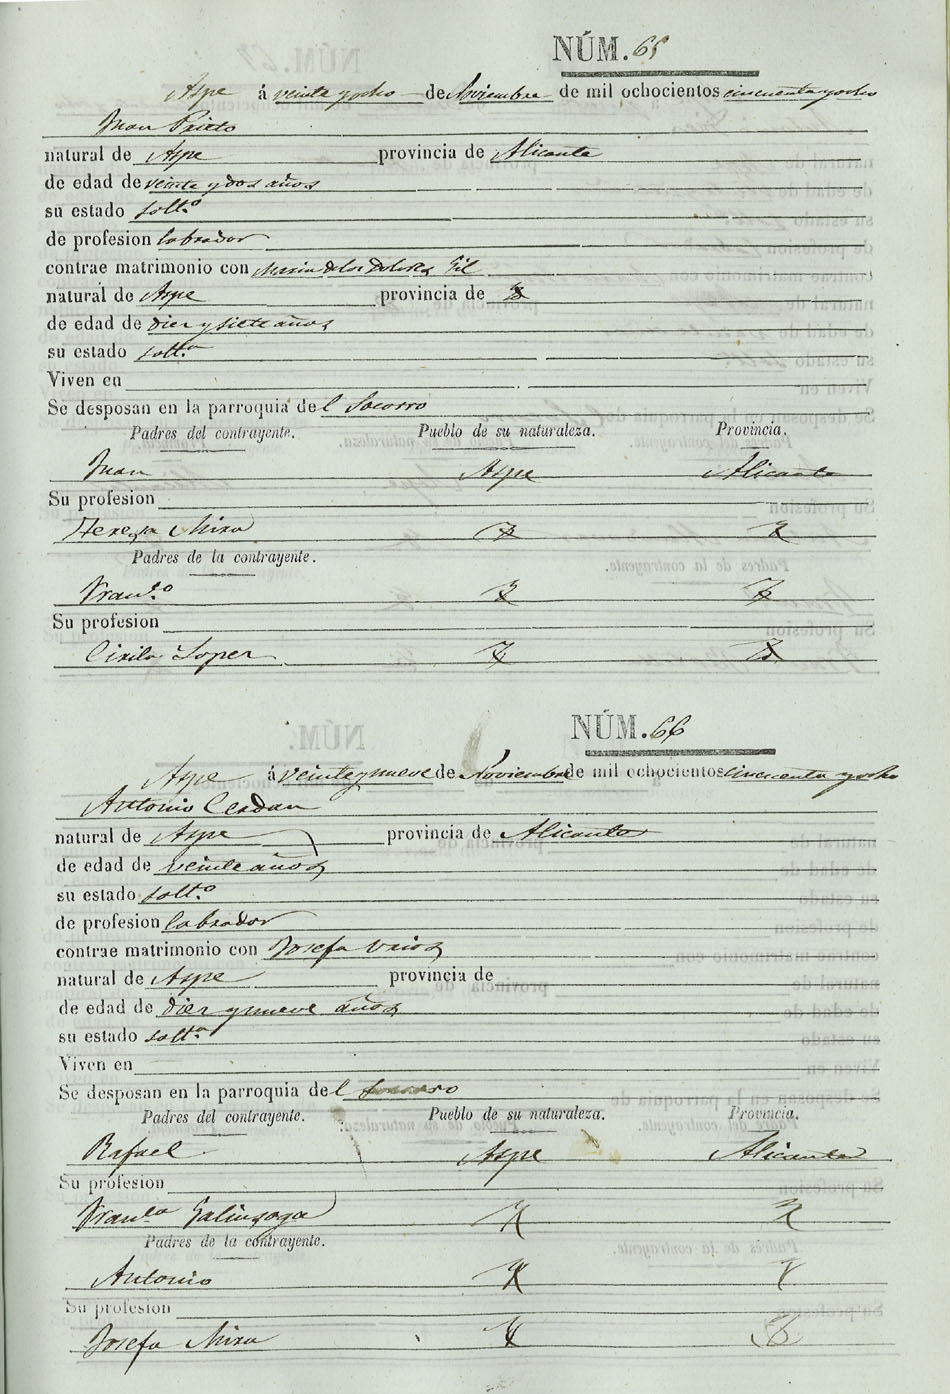 NÚM. 65
Aspe á veinte y ocho de Noviembre de mil ochocientos cincuenta y ocho
Juan Prieto
natural de Aspe provincia de Alicante
de edad de veinte y dos años
su estado solt.o
de profesion labrador
contrae matrimonio con Maria de los Dolores Gil
natural de Aspe provincia de
de edad de diez y siete años
su estado solt.a
Viven en
Se desposan en la parroquia del Socorro
Padres del contrayente. Pueblo de su naturaleza. Provincia.
Juan Aspe Alicante
Su profesion
Teresa Mira
Padres de la contrayente.
Fran.co
Su profesion
Cirila Lopez
NÚM. 66
Aspe á veinte y nueve de Noviembre de mil ochocientos cincuenta y ocho
Antonio Cerdan
natural de Aspe provincia de Alicante
de edad de veinte años
su estado solt.o
de profesion labrador
contrae matrimonio con Josefa
natural de Aspe provincia de
de edad de diez y nueve años
su estado solt.a
Viven en
Se desposan en la parroquia del Socorro
Padres del contrayente. Pueblo de su naturaleza. Provincia.
Rafael Aspe Alicante
Su profesion
Fran.ca Galinzoga
Padres de la contrayente.
Antonio
Su profesion
Josefa Mira